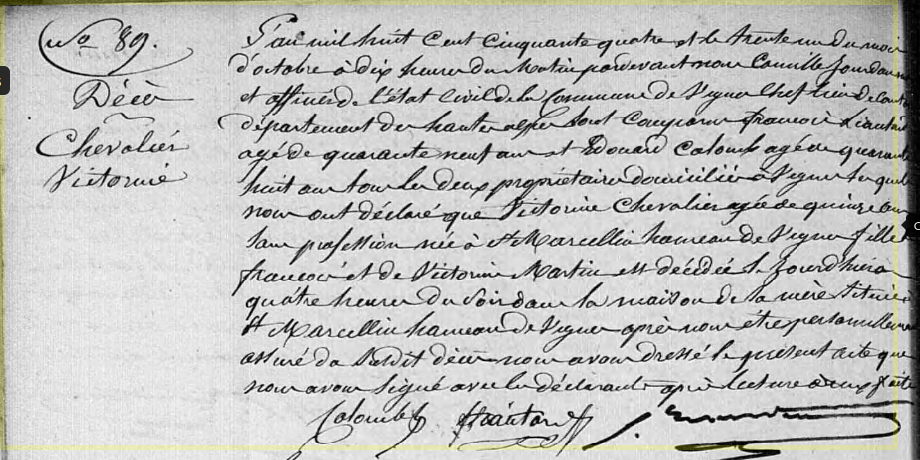 No 89.
Décès
Chevalier
Victorine
L'an mil huit cent cinquante quatre et le trente un du mois
d'octobre à dix heures du Matin pardevant nous Camille Jourdan
et officier de l'état civil de la Commune de Vigne Chef lieu de Canton
département des hautes alpes sont comparus francois
agé de quarante neuf ans et Edouard Colomb agé de quarante
huit ans tous les deux propriétaires domiciliés à Vigne lesquels
nous ont déclaré que Victorine Chevalier agée de quinze ans
sans profession née à St Marcellin hameau de Vigne fille
francois et de Victorine Martin est décédée le jourdhier à
quatre heures du soir dans la maison de sa mère située
St Marcellin hameau de Vigne après nous etre personnellement
assuré du susdit décès nous avons dressé le présent acte que
nous avons signé avec les déclarants après lecture à eux faite
Colomb